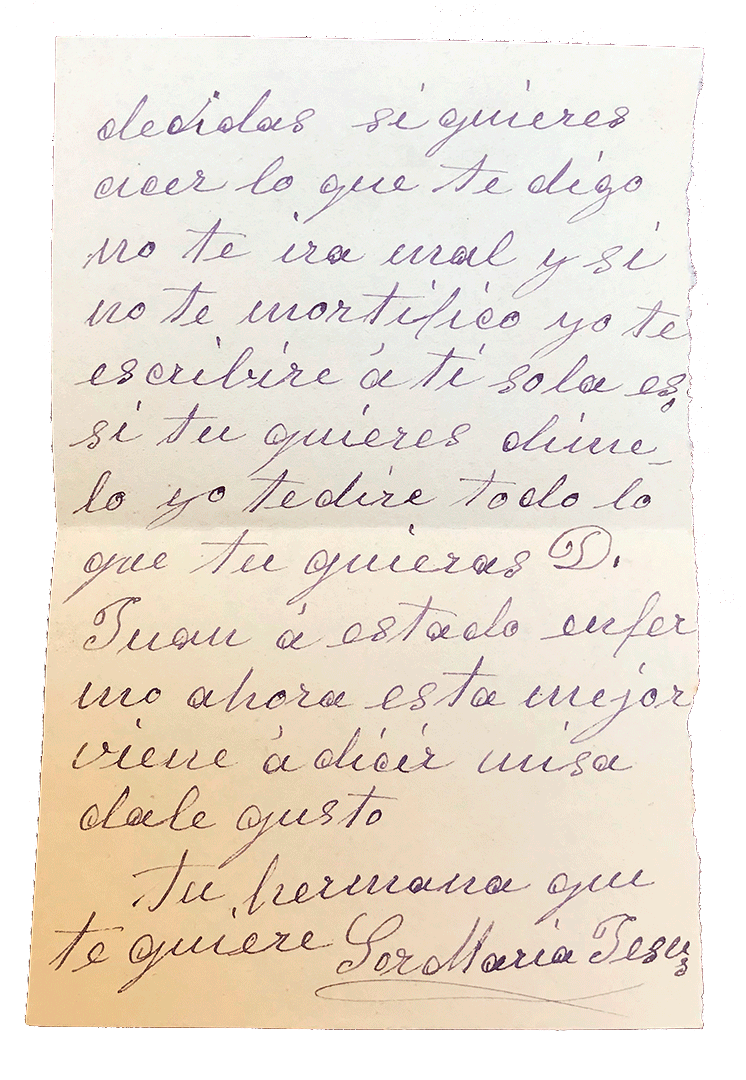 decidas si quieres
acer lo que te digo
no te ira mal y si
no te mortifico yo te
escribire á ti sola es,
si tu quieres dime_
lo yo tedire todo lo
que tu quieras D.
Juan á estado enfer
mo ahora esta mejor
viene á dicir misa
dale gusto
tu hermana que
te quiere Sor Maria Jesus